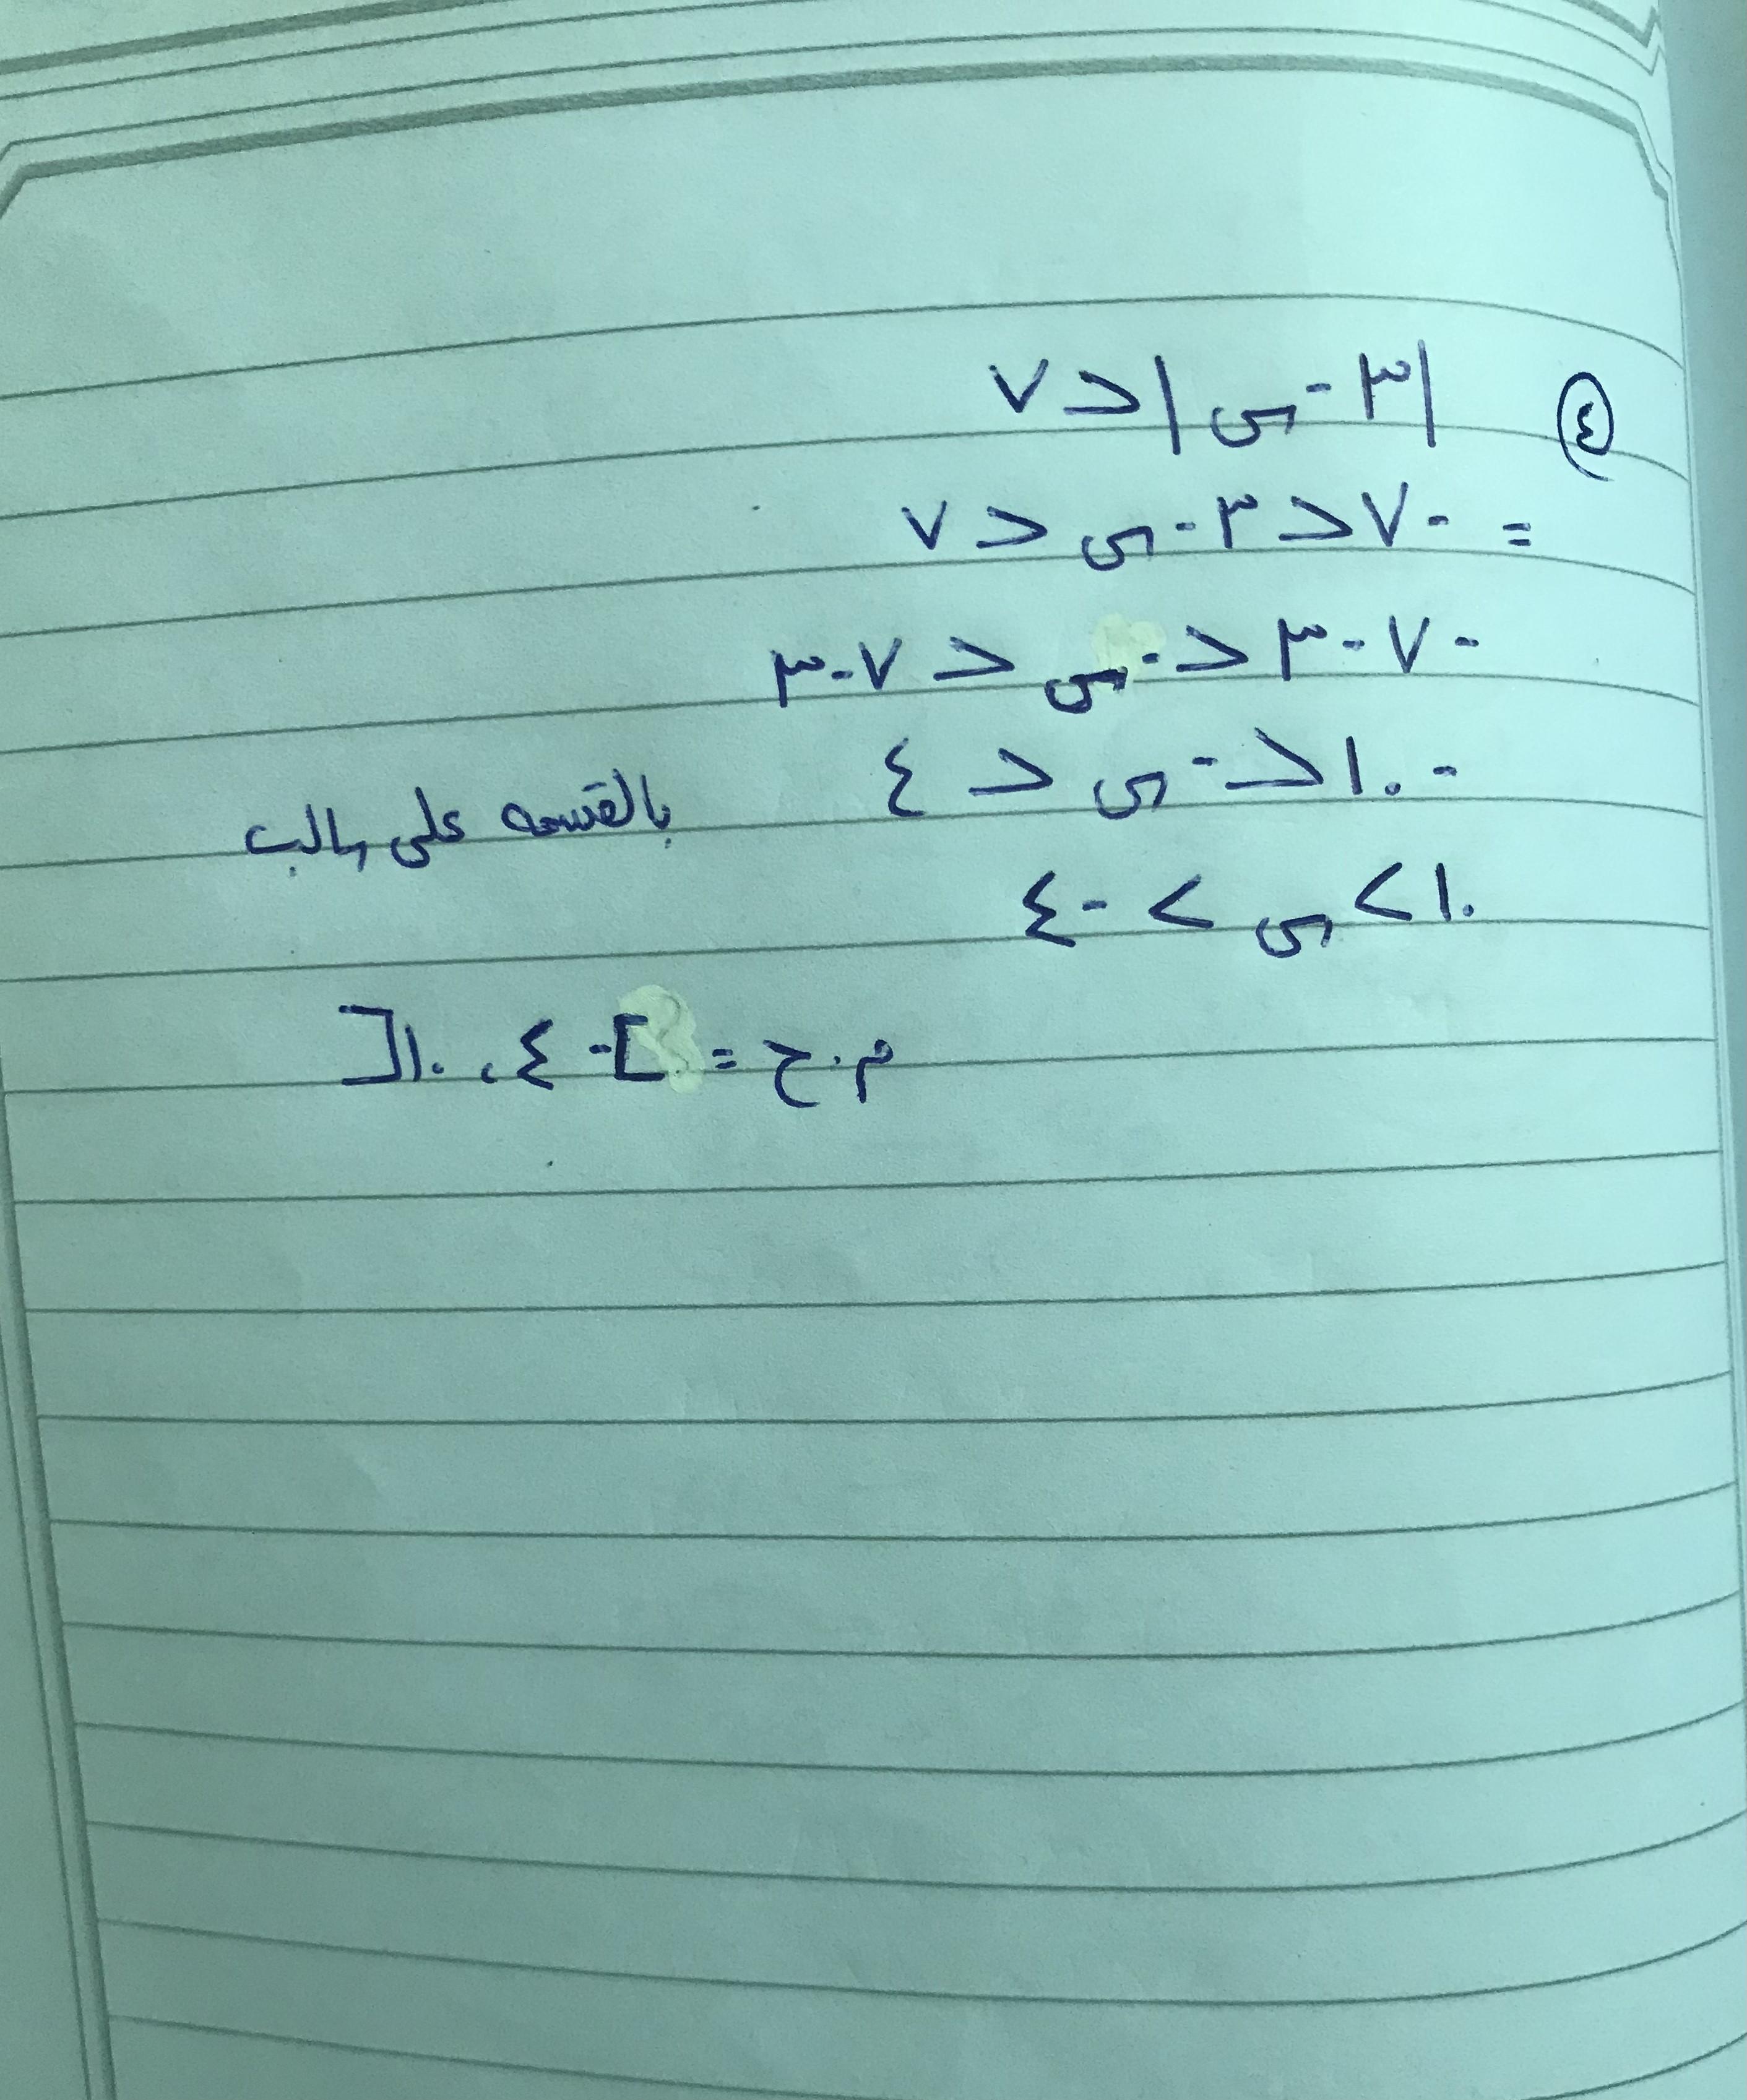 ④ |٣ - س| < ٧
= -٧ < ٣ - س < ٧
-٧ - ٣ < -س < ٧ - ٣
-١٠ < -س < ٤ بالقسمه على سالب
١٠ > س > -٤
م.ح = ]-٤ ، ١٠[